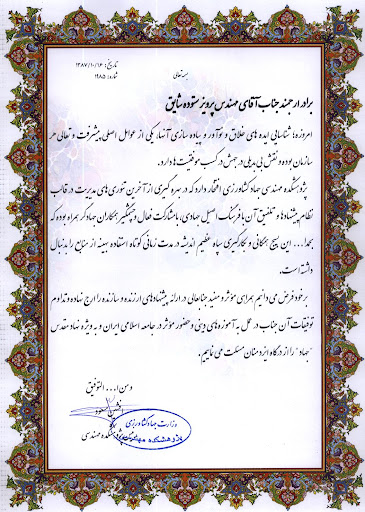 بسمه تعالی
تاریخ: ۱۳۸۷/۱۰/۱۶
شماره: ۱۹۸۵
برادر ارجمند جناب آقای مهندس پرویز ستوده شایق
امروزه؛ شناسایی ایده های خلاق و نوآور و پیاده سازی آنها، یکی از عوامل اصلی پیشرفت و تعالی هر
سازمان بوده و نقش بی بدیلی در جهش در کسب موفقیت ها دارد.
پژوهشکده مهندسی جهاد کشاورزی افتخار دارد که در بهره گیری از آخرین تئوری های مدیریت در قالب
نظام پیشنهادها و تلفیق آن با فرهنگ اصیل جهادی، با مشارکت فعال و چشمگیر همکاران جهادگر همراه بوده که
بحمدا... این بسیج همگانی و بکارگیری سپاه عظیم اندیشه در مدت زمانی کوتاه استفاده بهینه از منابع را بدنبال
داشته است.
بر خود فرض می دانیم همراهی مؤثر و مفید جنابعالی در ارائه پیشنهادهای ارزنده و سازنده را ارج نهاده و تداوم
توفیقات آن جناب در عمل به آموزه های دینی و حضور مؤثر در جامعه اسلامی ایران و به ویژه نهاد مقدس
"جهاد" را از درگاه ایزد منان مسئلت می نماییم.
ومن ا... التوفیق
وزارت جهاد کشاورزی
پژوهشکده مهندسی
پژوهشکده مهندسی